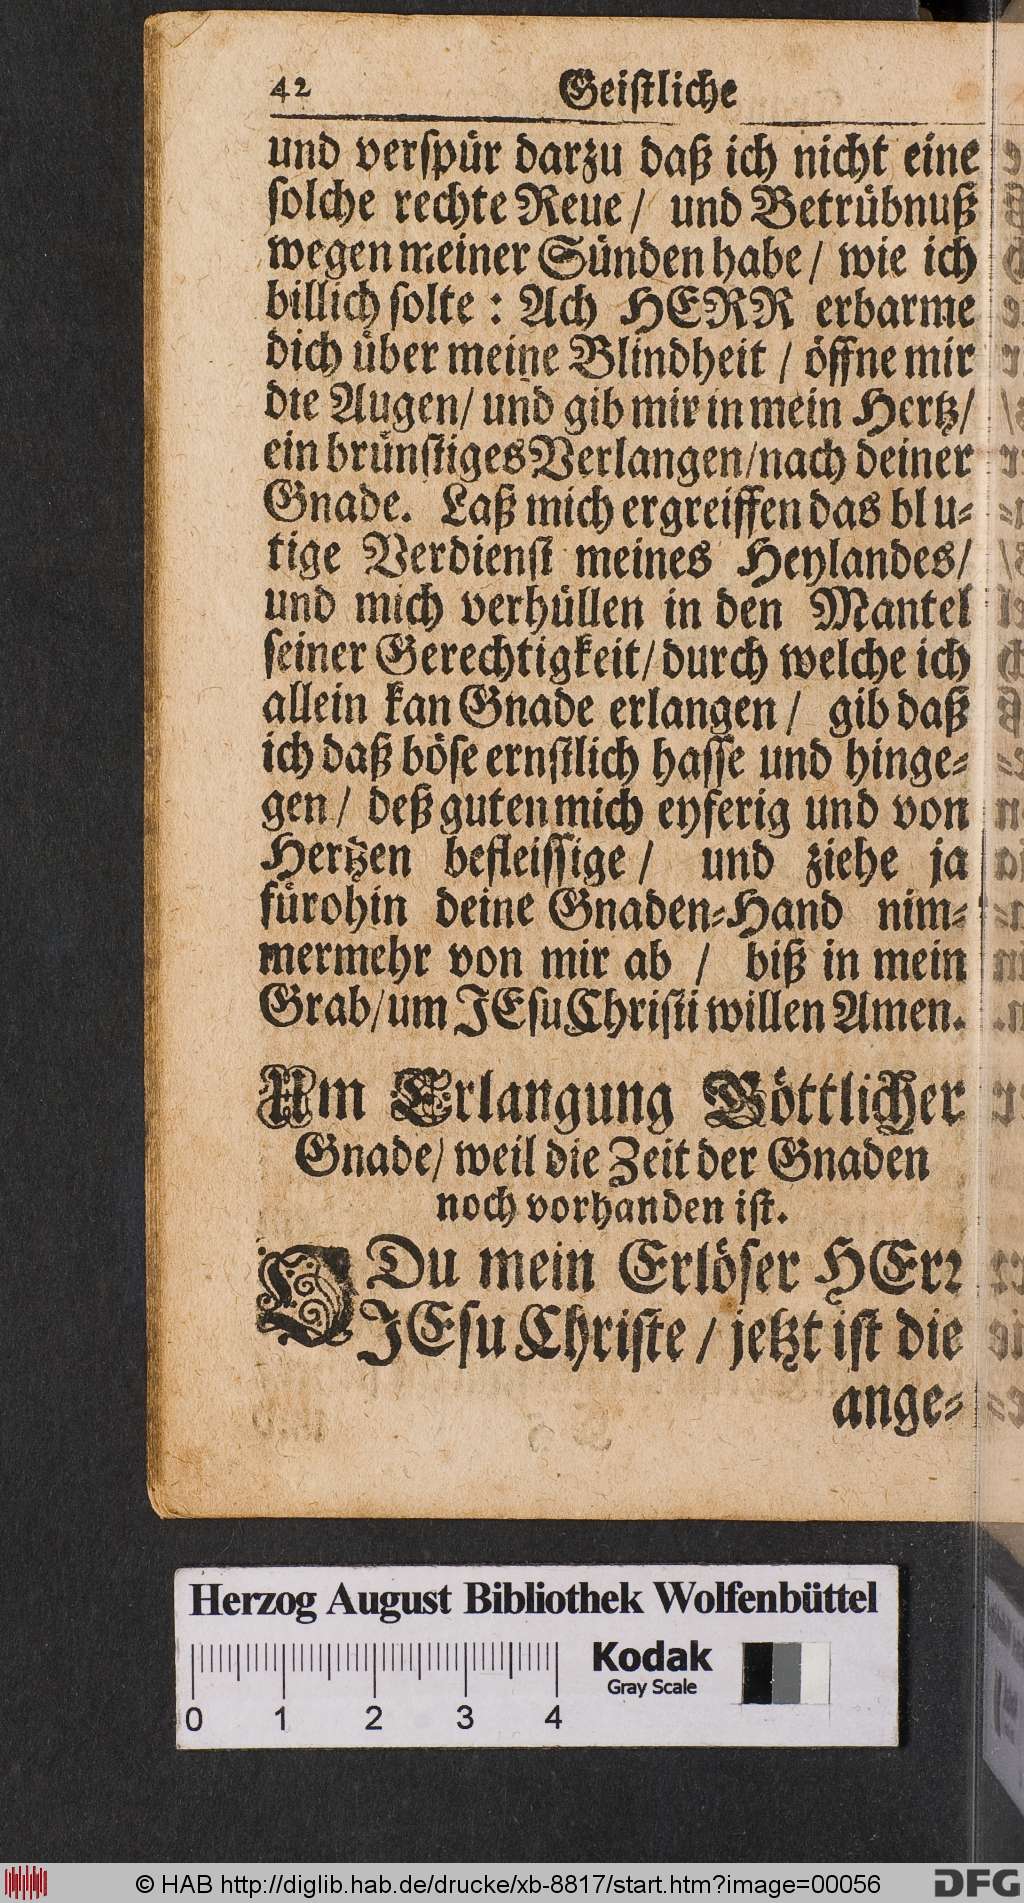 42 Geistliche
und verspür darzu daß ich nicht eine
solche rechte Reue / und Betrübnuß
wegen meiner Sünden habe / wie ich
billich solte : Ach HERR erbarme
dich über meine Blindheit / öffne mir
die Augen / und gib mir in mein Hertz /
ein brünstiges Verlangen / nach deiner
Gnade. Laß mich ergreiffen das blu-
tige Verdienst meines Heylandes /
und mich verhüllen in den Mantel
seiner Gerechtigkeit / durch welche ich
allein kan Gnade erlangen / gib daß
ich daß böse ernstlich hasse und hinge-
gen / deß guten mich eyferig und von
Hertzen befleissige / und ziehe ja
fürohin deine Gnaden-Hand nim-
mermehr von mir ab / biß in mein
Grab / um JEsu Christi willen Amen.
Um Erlangung Göttlicher
Gnade / weil die Zeit der Gnaden
noch vorhanden ist.
O Du mein Erlöser HErr
JEsu Christe / jetzt ist die
ange-
Herzog August Bibliothek Wolfenbüttel
Kodak
Gray Scale
0 1 2 3 4
© HAB http://diglib.hab.de/drucke/xb-8817/start.htm?image=00056
DFG